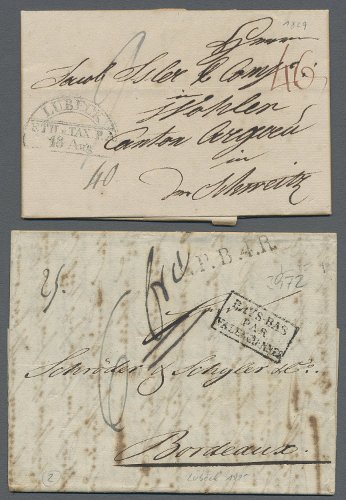 1829
Herrn
Jacob Isler & Comp.
46
in
Wohlen
Canton Argau
in
der Schweitz
LÜBECK
TH. u. TAX.
15 Aug
6
40
L.P.B.4.R.
2972
25.
6
PAYS-BAS
PAR
VALENCIENNES
Schröder & Schyler & Co.
Bordeaux.
2
Lübeck